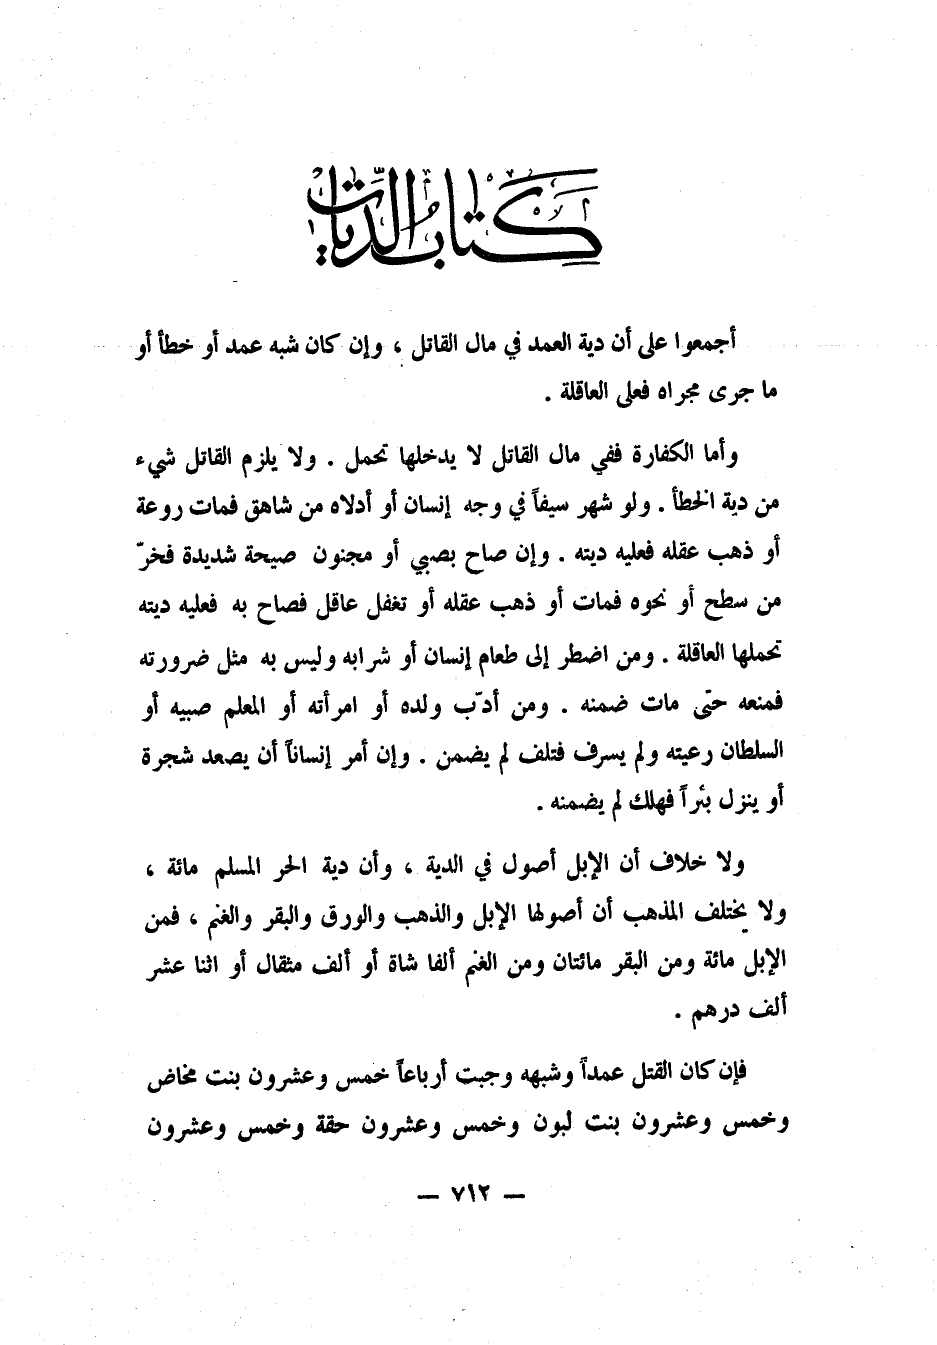 كتاب الديات
أجمعوا على أن دية العمد في مال القاتل ، وإن كان شبه عمد أو خطأ أو
ما جرى مجراه فعلى العاقلة .
وأما الكفارة ففي مال القاتل لا يدخلها تحمل . ولا يلزم القاتل شيء
من دية الخطأ . ولو شهر سيفاً في وجه إنسان أو أدلاه من شاهق فمات روعة
أو ذهب عقله فعليه ديته . وإن صاح بصبي أو مجنون صيحة شديدة فخرّ
من سطح أو نحوه فمات أو ذهب عقله أو تغفل عاقل فصاح به فعليه ديته
تحملها العاقلة . ومن اضطر إلى طعام إنسان أو شرابه وليس به مثل ضرورته
فمنعه حتّى مات ضمنه . ومن أدّب ولده أو امرأته أو المعلم صبيه أو
السلطان رعيته ولم يسرف فتلف لم يضمن . وإن أمر إنساناً أن يصعد شجرة
أو ينزل بئراً فهلك لم يضمنه .
ولا خلاف أن الإبل أصول في الدية ، وأن دية الحر المسلم مائة ،
ولا يختلف المذهب أن أصولها الإبل والذهب والورق والبقر والغنم ، فمن
الإبل مائة ومن البقر مائتان ومن الغنم ألفا شاة أو ألف مثقال أو اثنا عشر
ألف درهم .
فإن كان القتل عمداً وشبهه وجبت أرباعاً خمس وعشرون بنت مخاض
وخمس وعشرون بنت لبون وخمس وعشرون حقة وخمس وعشرون
— ٧١٢ —